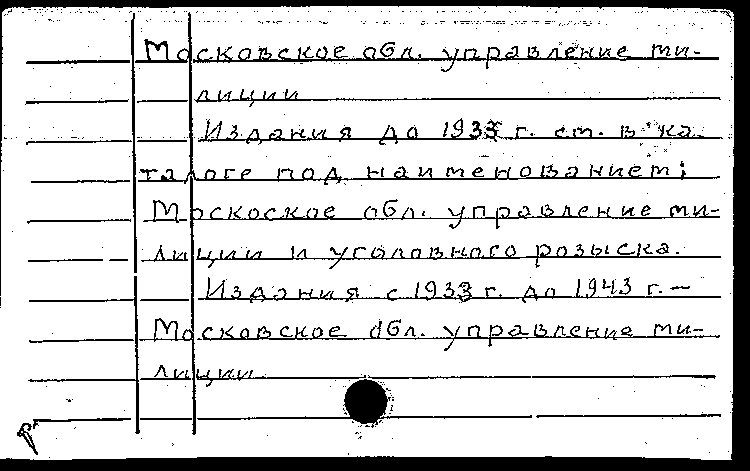 Московское обл. управление ми-
лиции
Издания до 1933 г. см. в ка
талоге под наименованием:
Москоское обл. управление ми-
лиции и уголовного розыска.
Издания с 1933 г. до 1943 г. –
Московское обл. управление ми-
лиции